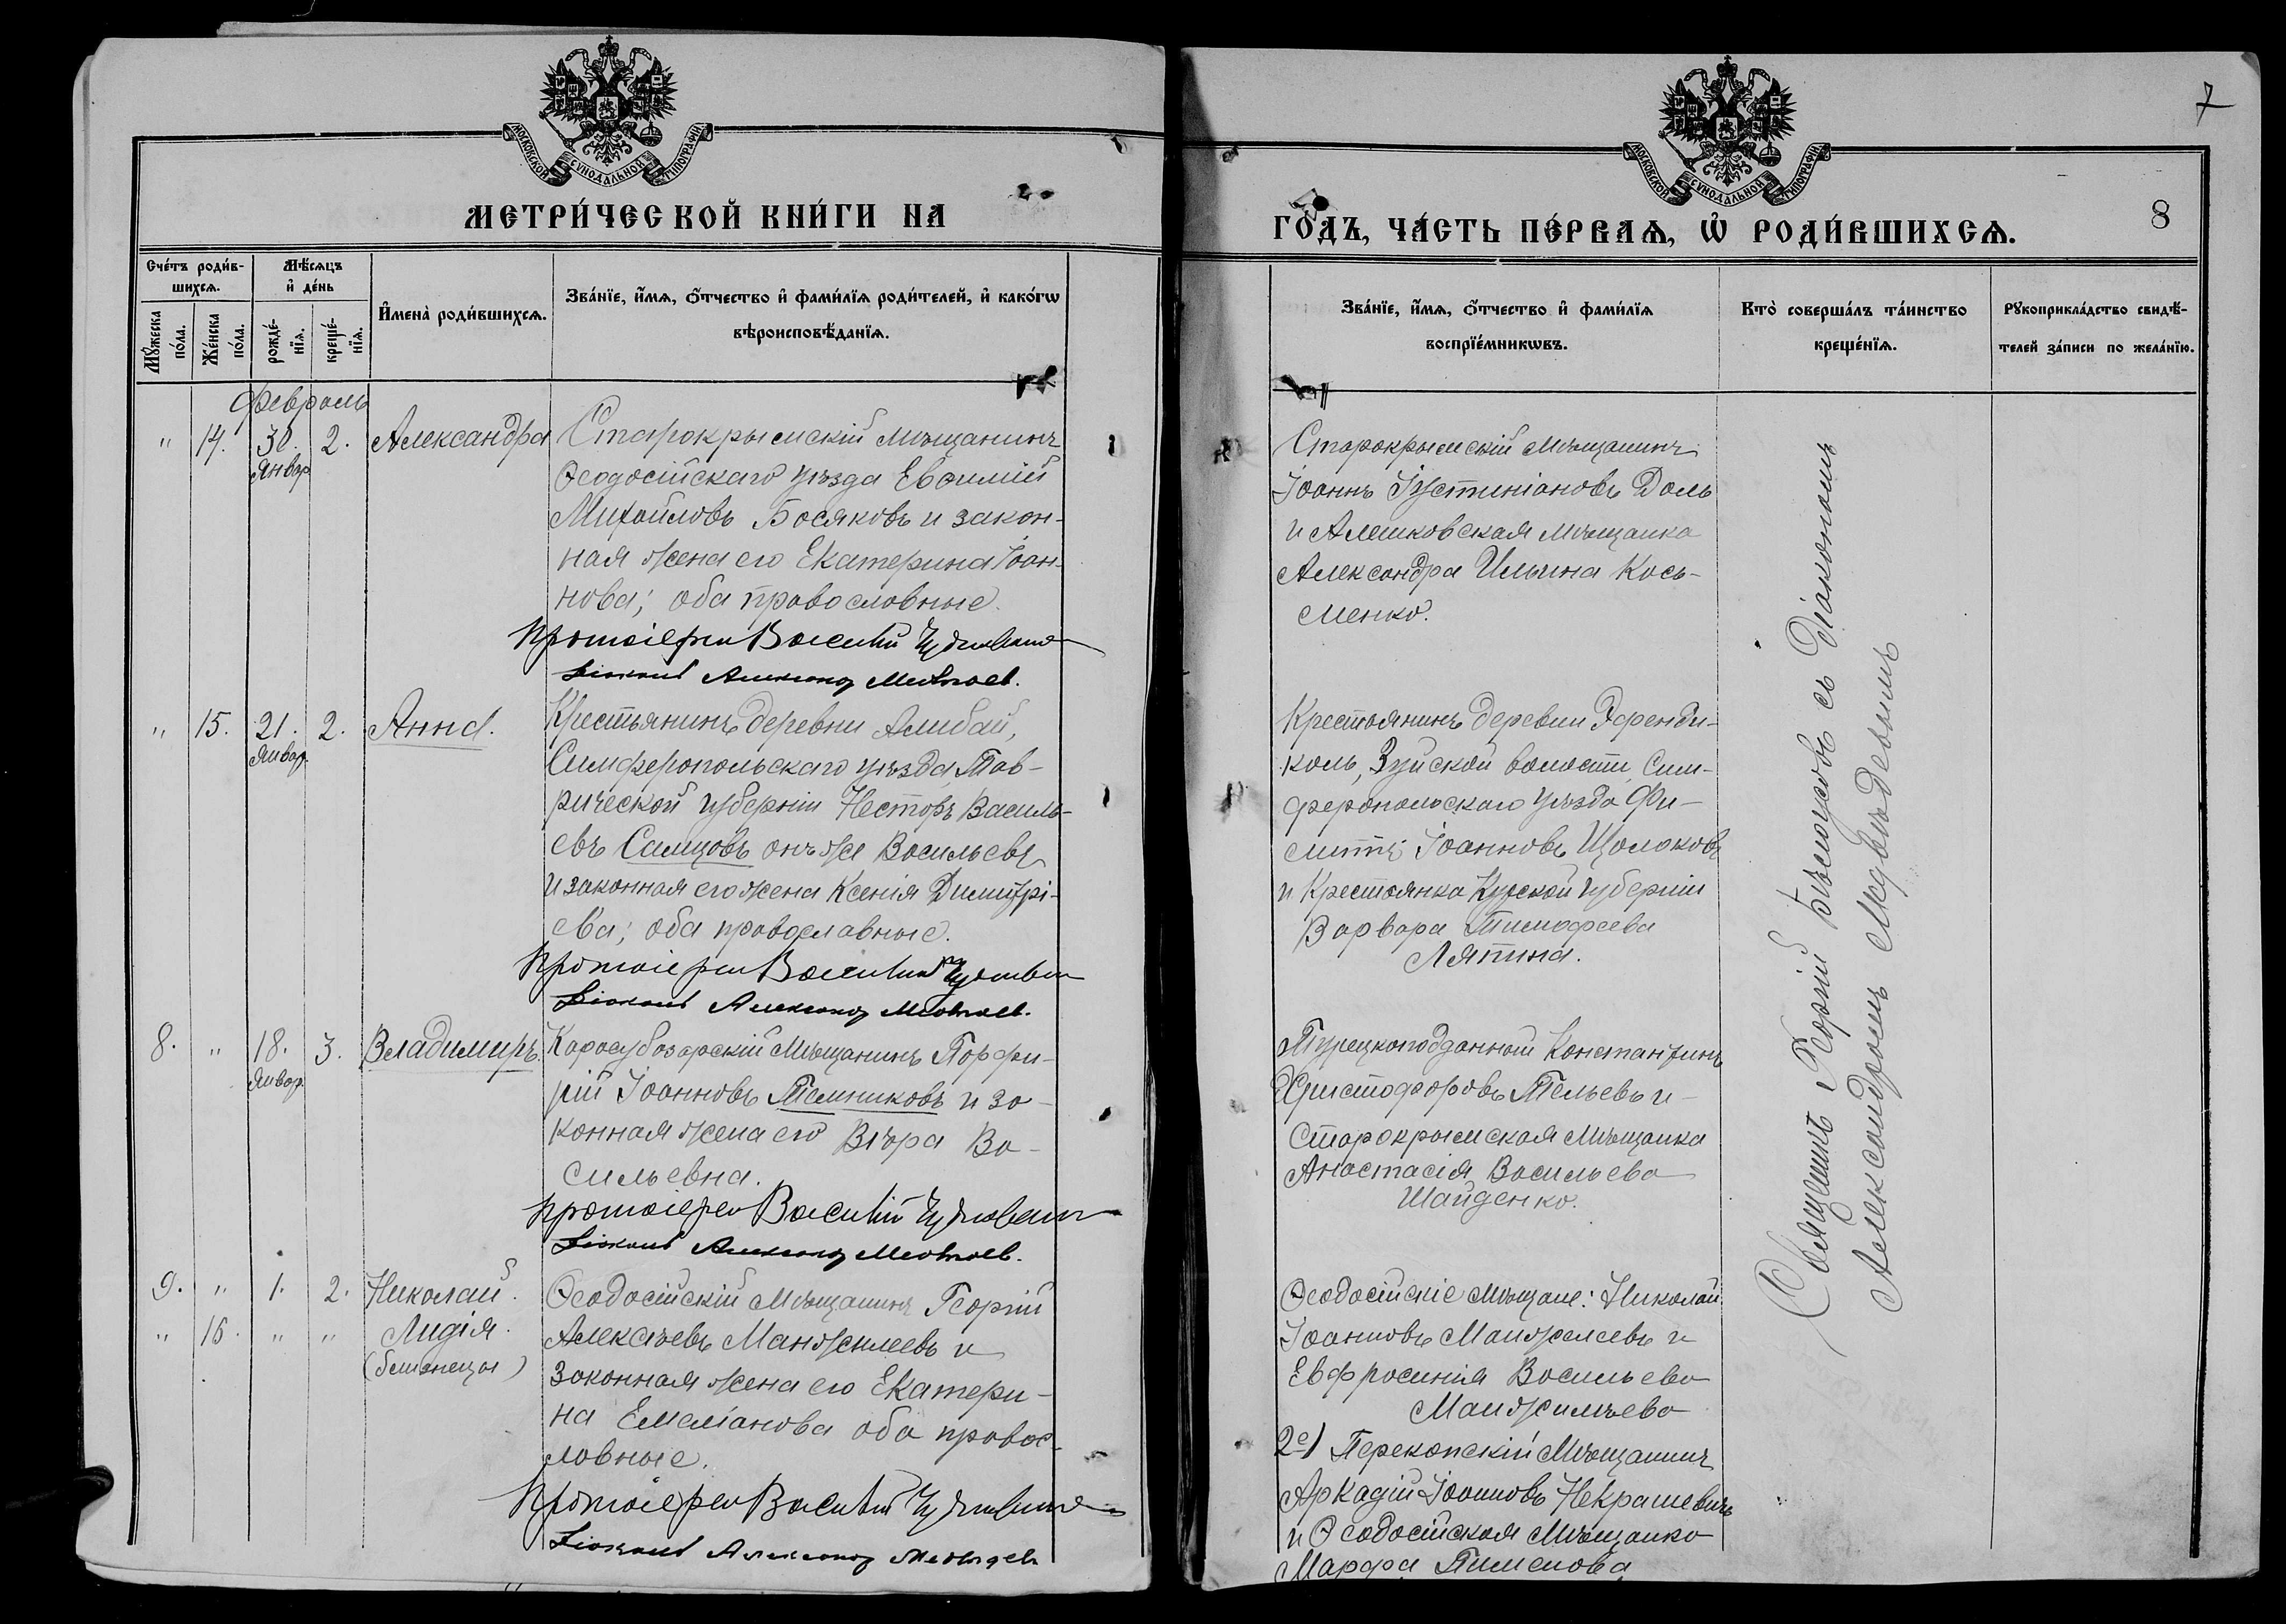 МОСКОВСКОЙ СѴНОДАЛЬНОЙ ТИПОГРАФІИ
МЕТРИ́ЧЕСКОЙ КНИ́ГИ НА
Сче́тъ роди́в-
шихсѧ.
Мꙋ́жеска
по́ла.
Же́нска
по́ла.
Мѣ́сѧцъ
и҆ де́нь
рожде́-
нїѧ.
креще́-
нїѧ.
И҆мена̀ роди́вшихсѧ.
Зва́нїе, и҆́мѧ, ѻ҆́тчество и҆ фами́лїѧ роди́телей, и҆ како́гѡ
вѣроисповѣ́данїѧ.
Февраль
" 14. 30. 2. Александра
Январ
Старокрымскій мѣщанинъ
Ѳеодосійскаго уѣзда Евѳимій
Михайловъ Босяковъ и закон-
ная жена его Екатерина Іоан-
нова; оба православные.
Протоіерей Василій
Діаконъ Александр Медведев.
" 15. 21. 2. Анна.
Январ.
Крестьянинъ деревни Алибай,
Симферопольскаго уѣзда, Тав-
рической губерніи Несторъ Василь-
евъ Самцовъ онъ же Васильевъ
и законная его жена Ксенія Димитрі-
ева; оба православные.
Протоіерей Василій
Діаконъ Александр Медведев.
8. " 18. 3. Владимиръ.
Январ.
Карасубазарскій мѣщанинъ Порфи-
рій Іоанновъ Темниковъ и за-
конная жена его Вѣра Ва-
сильевна.
Протоіерей Василій
Діаконъ Александр Медведев.
9. " 1. 2. Николай.
" 16. " " Лидія.
(близнецы)
Ѳеодосійскій мѣщанинъ Георгій
Алексѣевъ Манжелеевъ и
законная жена его Екатери-
на Емеліанова оба правос-
лавные.
Протоіерей Василій
Діаконъ Александр Медведев
7
МОСКОВСКОЙ СѴНОДАЛЬНОЙ ТИПОГРАФІИ
ГО́ДЪ, ЧА́СТЬ ПЕ́РВАѦ, Ѡ҆ РОДИ́ВШИХСѦ.
8
Зва́нїе, и҆́мѧ, ѻ҆́тчество и҆ фами́лїѧ
воспрїе́мникѡвъ.
Кто̀ соверша́лъ та́инство
креще́нїѧ.
Рꙋкоприкла́дство свидѣ́-
телей за́писи по жела́нїю.
Старокрымскій мѣщанинъ
Іоаннъ Іустиніановъ Даль
и Алешковская мѣщанка
Александра Ильина Кось-
менко.
Крестьянинъ деревни Эфенди-
коль, Зуйской волости, Сим-
феропольскаго уѣзда
Іоанновъ Щолоковъ
и Крестьянка Курской губерніи
Варвара Тимофеева
Ляпина.
Турецкоподданный Константинъ
Христофоровъ Тельевъ и
Старокрымская мѣщанка
Анастасія Васильева
Шайденко.
Ѳеодосійскіе мѣщане: Николай
Іоанновъ Манжелеевъ и
Евфросинія Васильева
Манжелѣева
2е) Перекопскій мѣщанинъ
Аркадій Іоанновъ Некрашевичъ
и Ѳеодосійская мѣщанка
Марфа Пименова
Священникъ Георгій Бѣлоусовъ съ Діакономъ
Александромъ Медвѣдевымъ